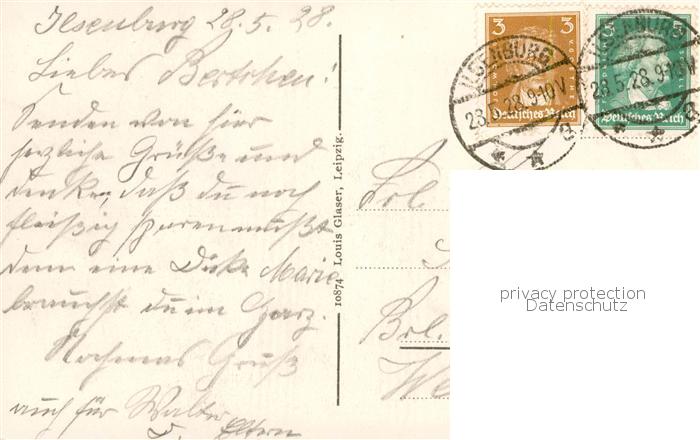 Ilsenburg 28.5.28.
Liebes Bertchen!
Senden von hier
herzliche Grüße und
denken, daß du noch
fleißig sparen mußt
denn eine Dicke Marie
brauchst du im Harz.
Nochmals Gruß
auch für Walter
Eltern
10874 Louis Glaser, Leipzig.
3 3
Deutsches Reich
5
Deutsches Reich
ILSENBURG
28.5.28.9-10V
ILSENBURG
28.5.28.9-10V
Frl.
Brl.
We
privacy protection
Datenschutz